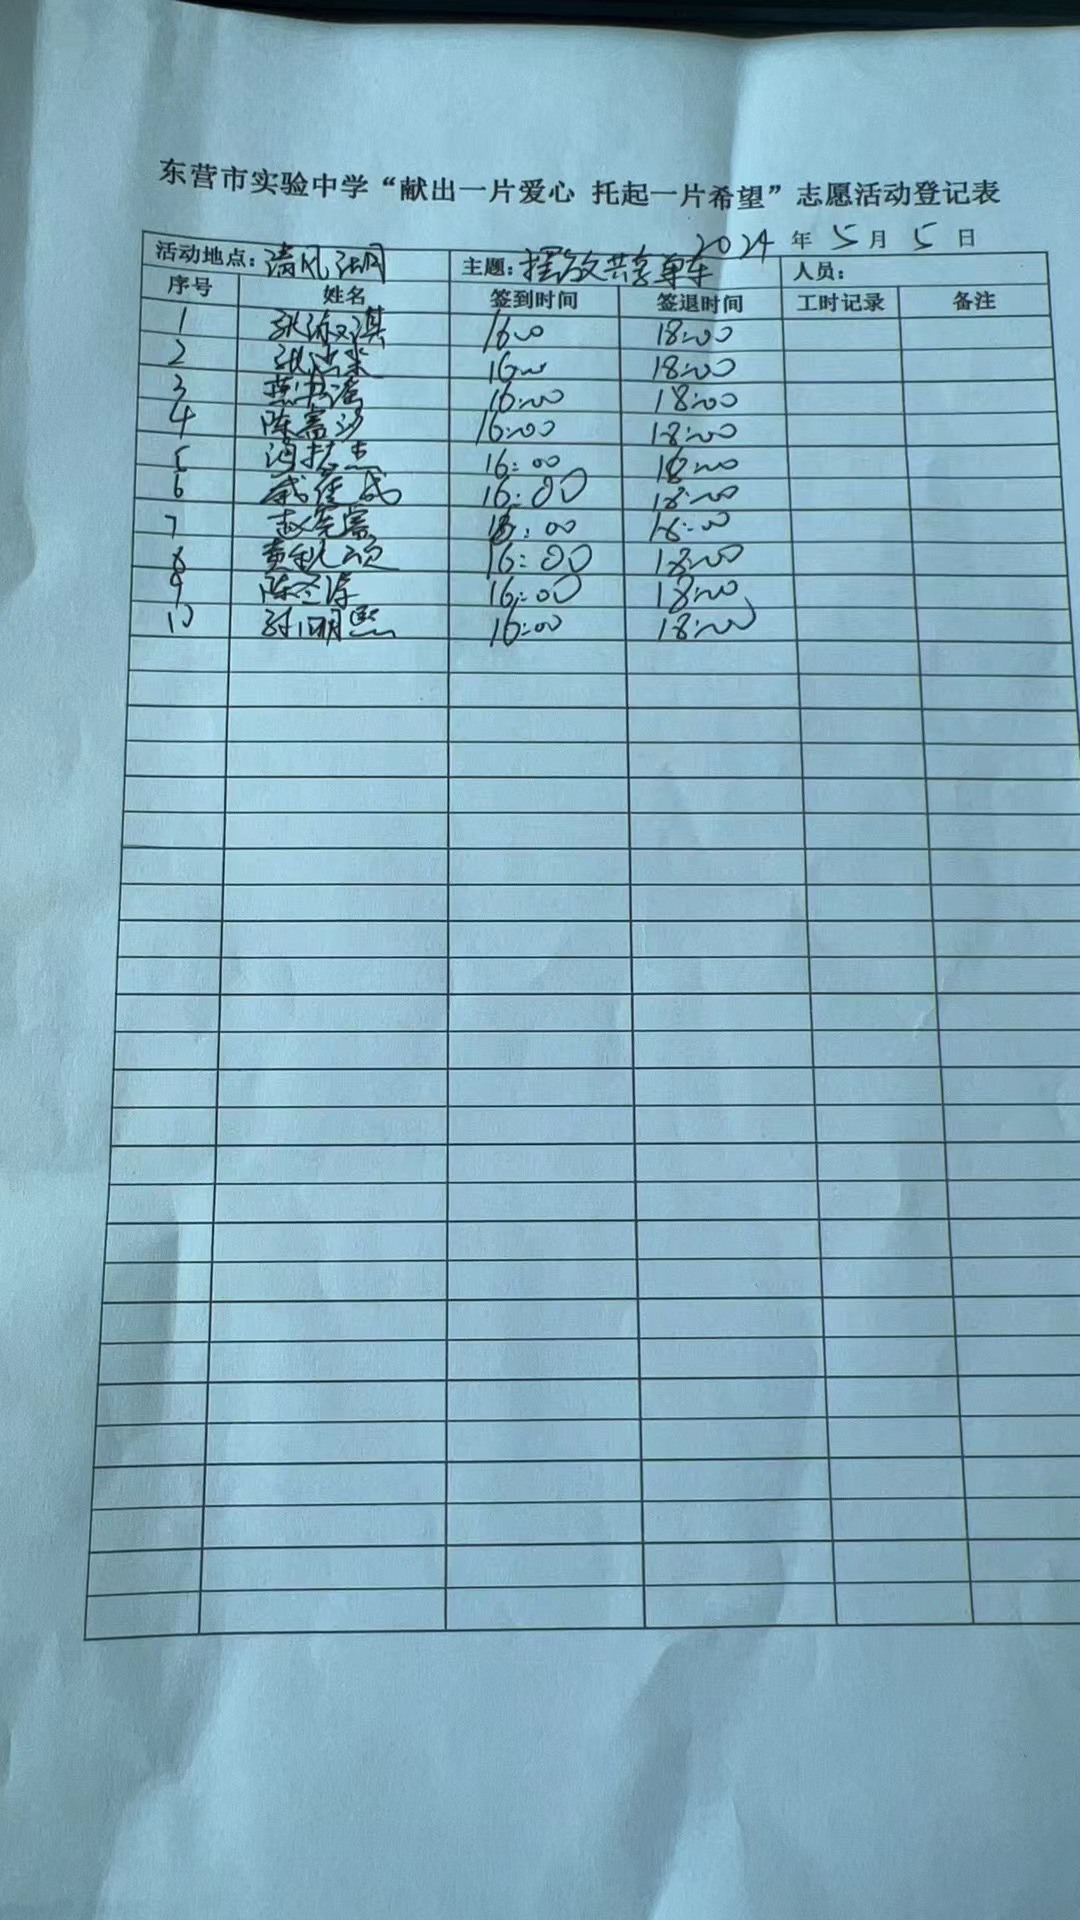 东营市实验中学“献出一片爱心 托起一片希望”志愿活动登记表
2024 年 5 月 5 日
活动地点：清风 主题：摆放共享单车 人员：
序号 姓名 签到时间 签退时间 工时记录 备注
1 张 淇 16:00 18:00
2 张 16:00 18:00
3 燕书 16:00 18:00
4 陈富 16:00 18:00
5 冯 杰 16:00 18:00
6 16:00 18:00
7 赵 :00 18:00
8 黄 颂 16:00 18:00
9 陈 16:00 18:00
10 明熙 16:00 18:00